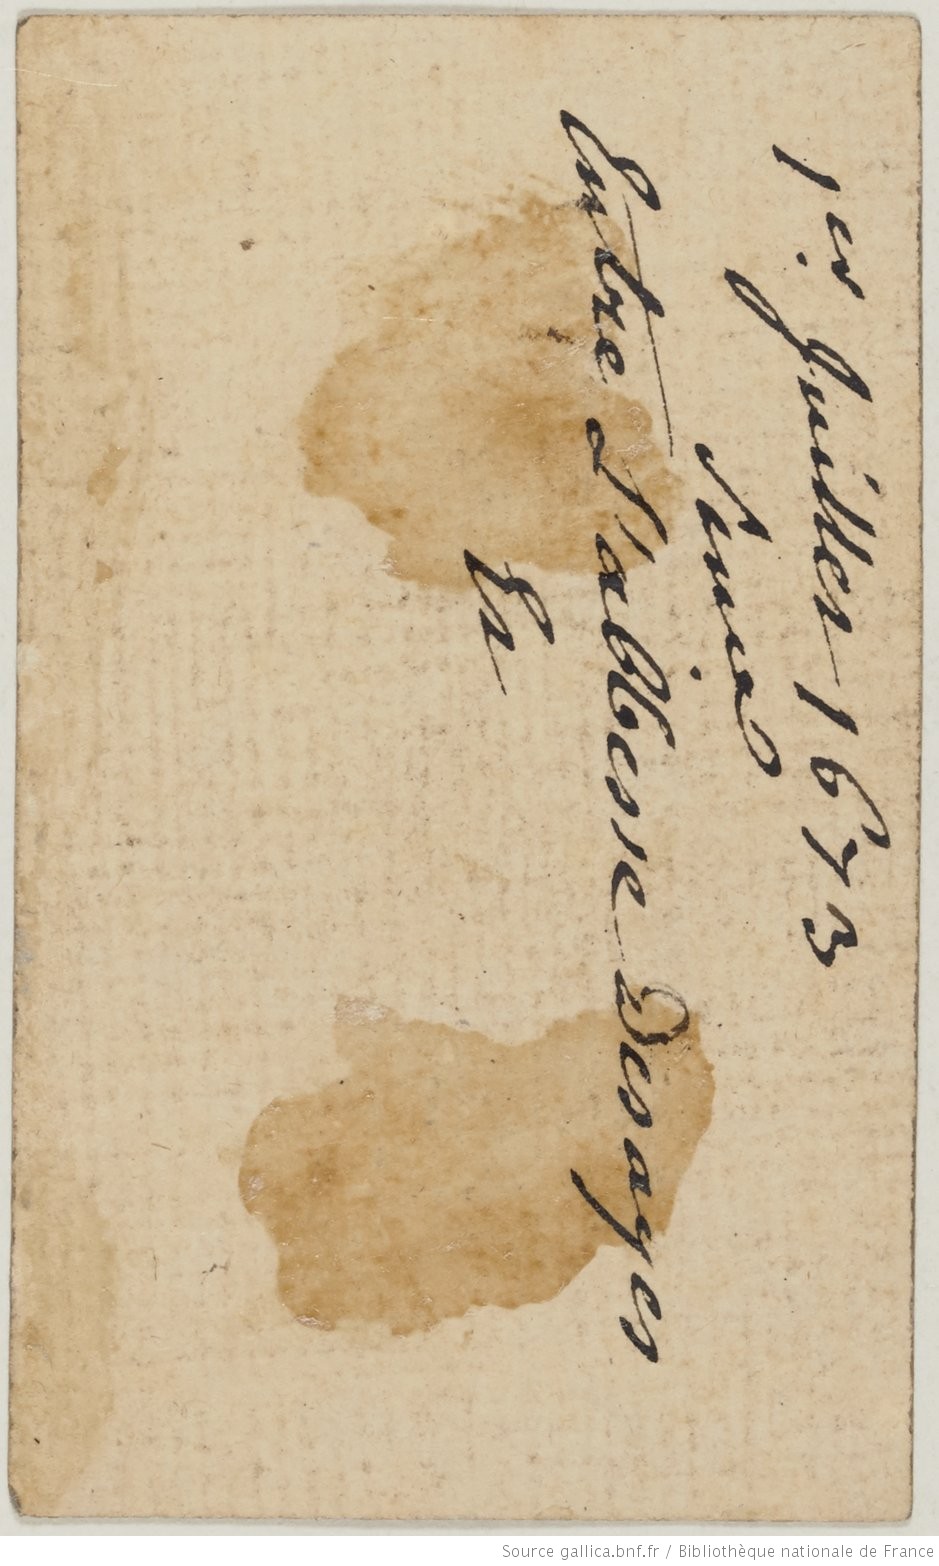 1er Juillet 1673
Entre L'abbesse Desayes
En
Source gallica.bnf.fr / Bibliothèque nationale de France